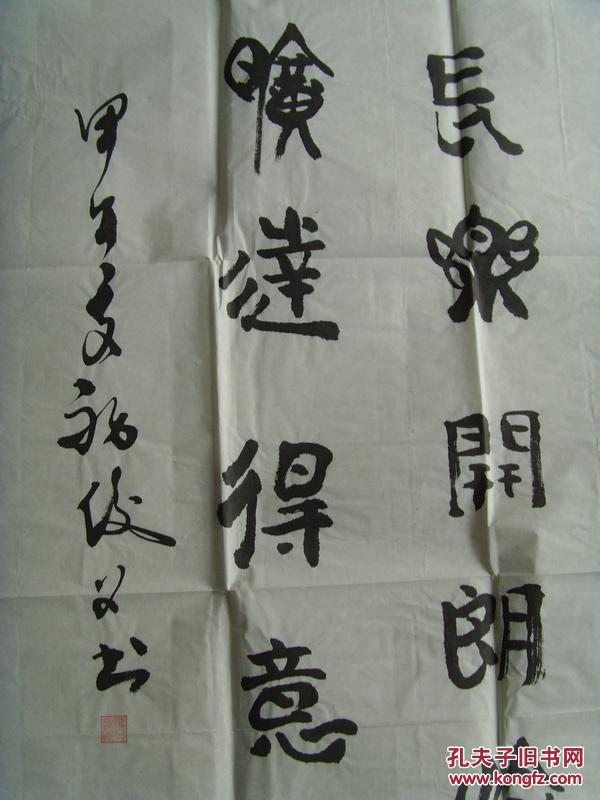 長樂開朗
曠達得意
甲午福俊书
孔夫子旧书网
www.kongfz.com